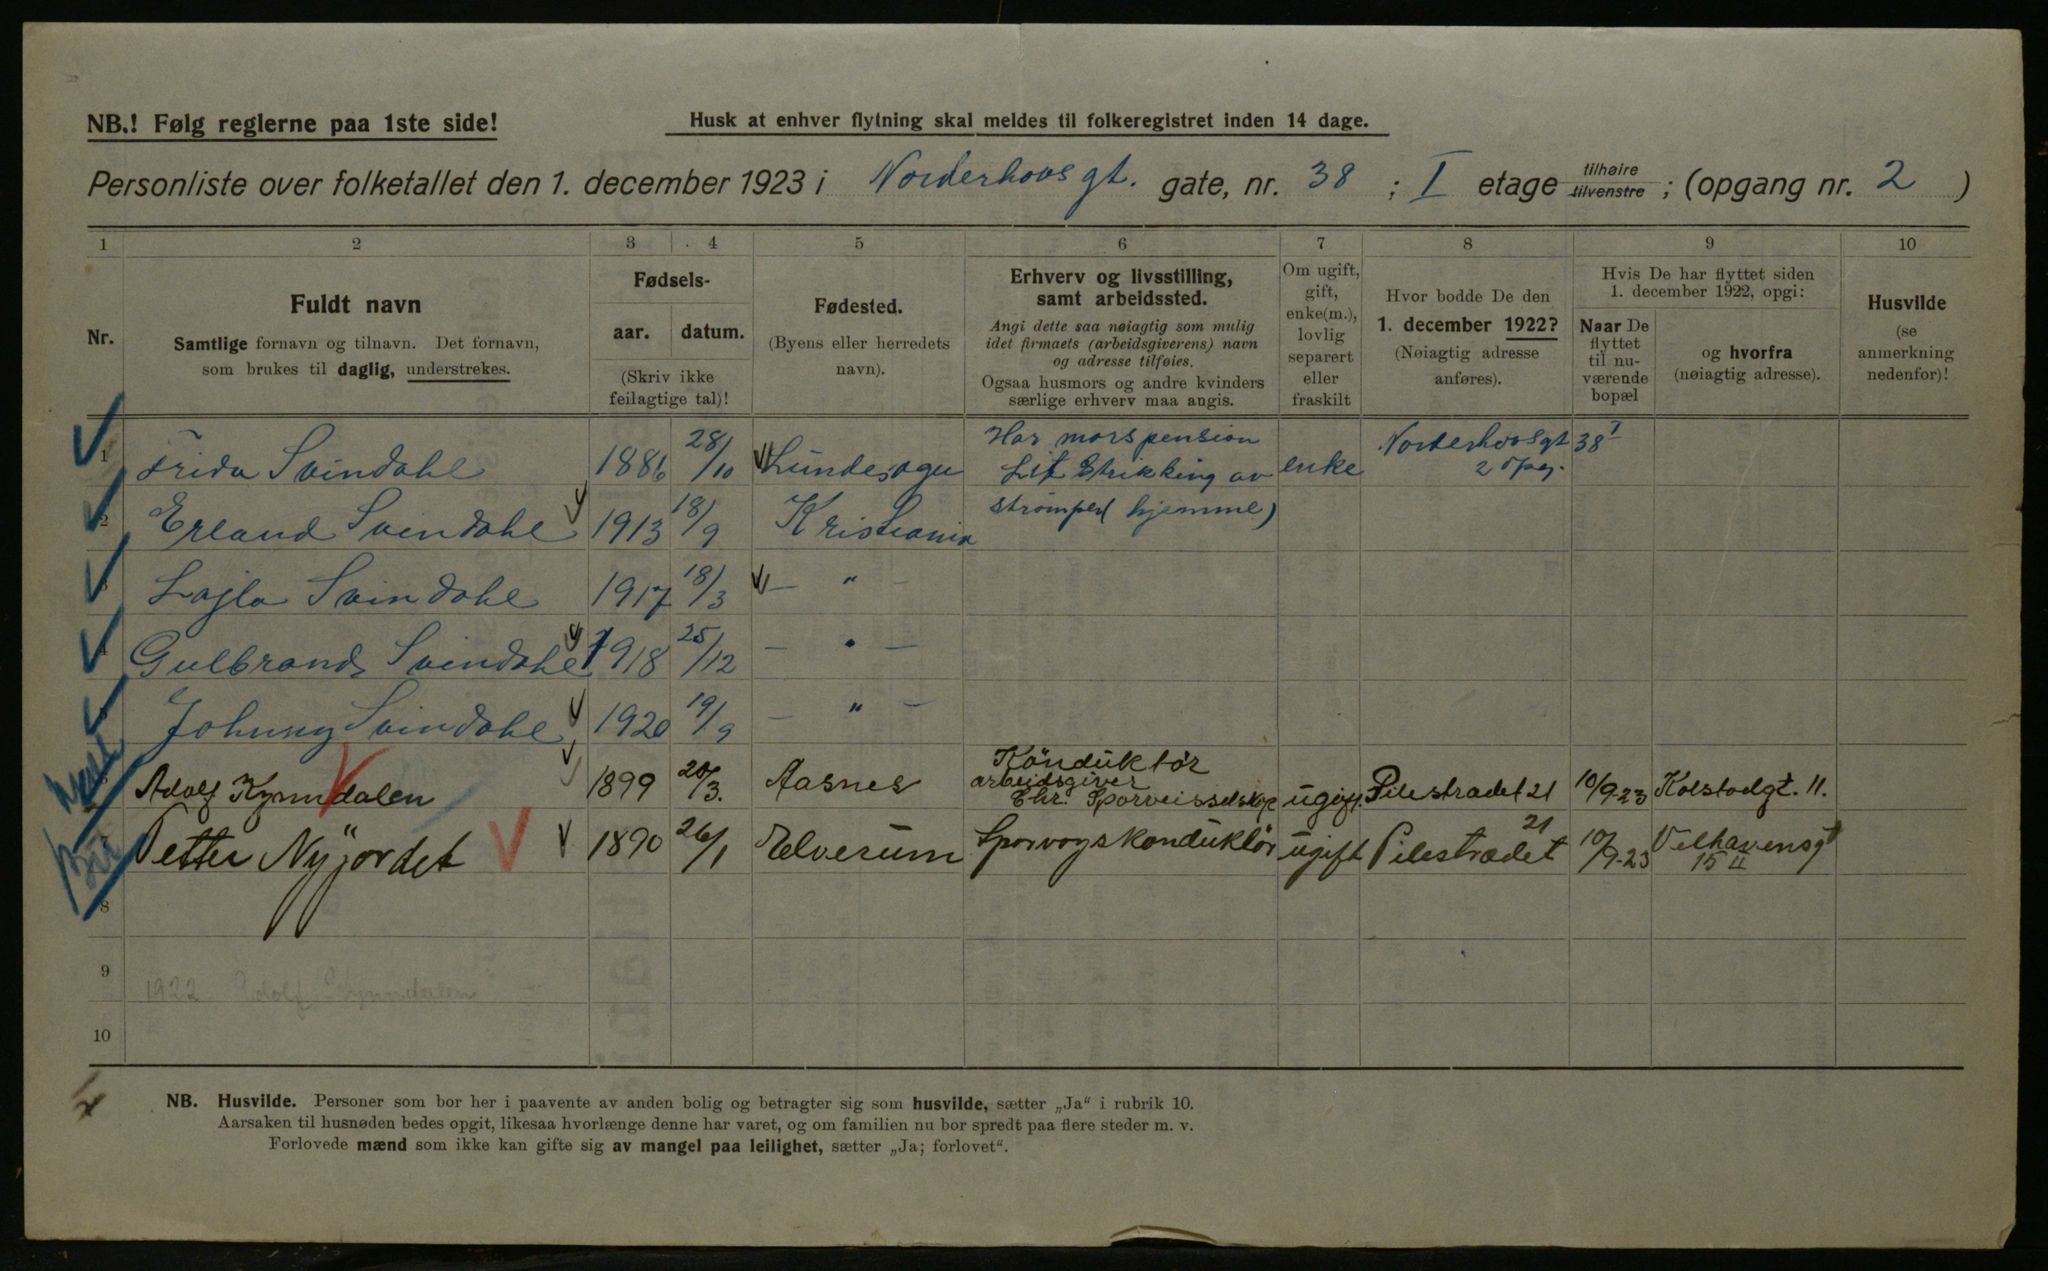 NB.! Følg reglerne paa 1ste side!
Husk at enhver flytning skal meldes til folkeregistret inden 14 dage.
Personliste over folketallet den 1. december 1923 i Norderhovsgt. gate, nr. 38 ; I etage tilhøire tilvenstre ; (opgang nr. 2 )
1 2 3 4 5 6 7 8 9 10
Nr.
Fuldt navn
Samtlige fornavn og tilnavn. Det fornavn,
som brukes til daglig, understrekes.
Fødsels-
aar. datum.
(Skriv ikke
feilagtige tal)!
Fødested.
(Byens eller herredets
navn).
Erhverv og livsstilling,
samt arbeidssted.
Angi dette saa nøiagtig som mulig
idet firmaets (arbeidsgiverens) navn
og adresse tilføies.
Ogsaa husmors og andre kvinders
særlige erhverv maa angis.
Om ugift,
gift,
enke(m.),
lovlig
separert
eller
fraskilt
Hvor bodde De den
1. december 1922?
(Nøiagtig adresse
anføres).
Hvis De har flyttet siden
1. december 1922, opgi:
Naar De
flyttet
til nu-
værende
bopæl
og hvorfra
(nøiagtig adresse).
Husvilde
(se
anmerkning
nedenfor)!
1 Frida Svindahl 1886 28/10 Lundesogn Har morspension Lit Strikking av enke Norderhovsgt 38 I 2 opg.
2 Erland Svindahl 1913 18/9 Kristiania strømper (hjemme)
3 Lajla Svindahl 1917 18/3 — " —
4 Gulbrand Svindahl 1918 25/12 — " —
5 Johnny Svindahl 1920 19/9 — " —
6 Adolf Kynndalen 1899 20/3. Aasnes Konduktør arbeidsgiver Chr. Sporveisselskap ugift. Pilestrædet 21 10/9-23 Kolstadgt. 11.
7 Petter Nyjordet 1890 26/1 Elverum Sporvogskonduktør ugift Pilestrædet 21 10/9-23 Velhavensgt 15 II
8
9
1922 Adolf Kynndalen
10
NB. Husvilde. Personer som bor her i paavente av anden bolig og betragter sig som husvilde, sætter „Ja" i rubrik 10.
Aarsaken til husnøden bedes opgit, likesaa hvorlænge denne har varet, og om familien nu bor spredt paa flere steder m. v.
Forlovede mænd som ikke kan gifte sig av mangel paa leilighet, sætter „Ja; forlovet".